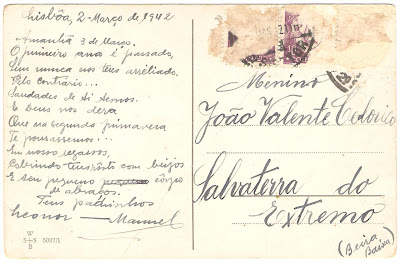 Lisbôa, 2-Março de 1942
Amanhã 3 de Março.
O primeiro ano é passado,
Sem nunca nos teres
Pelo contrario...
Saudades de ti temos.
E Deus nos dera
Que na segunda primavera
Te possamos...
Em nosso regaço,
Cobrindo teu rosto com beijos
E seu pequeno côrpo
de abraços.
Teus padrinhos
Leonor - Manuel
W
S+S 5007/1
B
Menino
João Valente
Salvaterra do
Extremo
(Beira
Baixa)